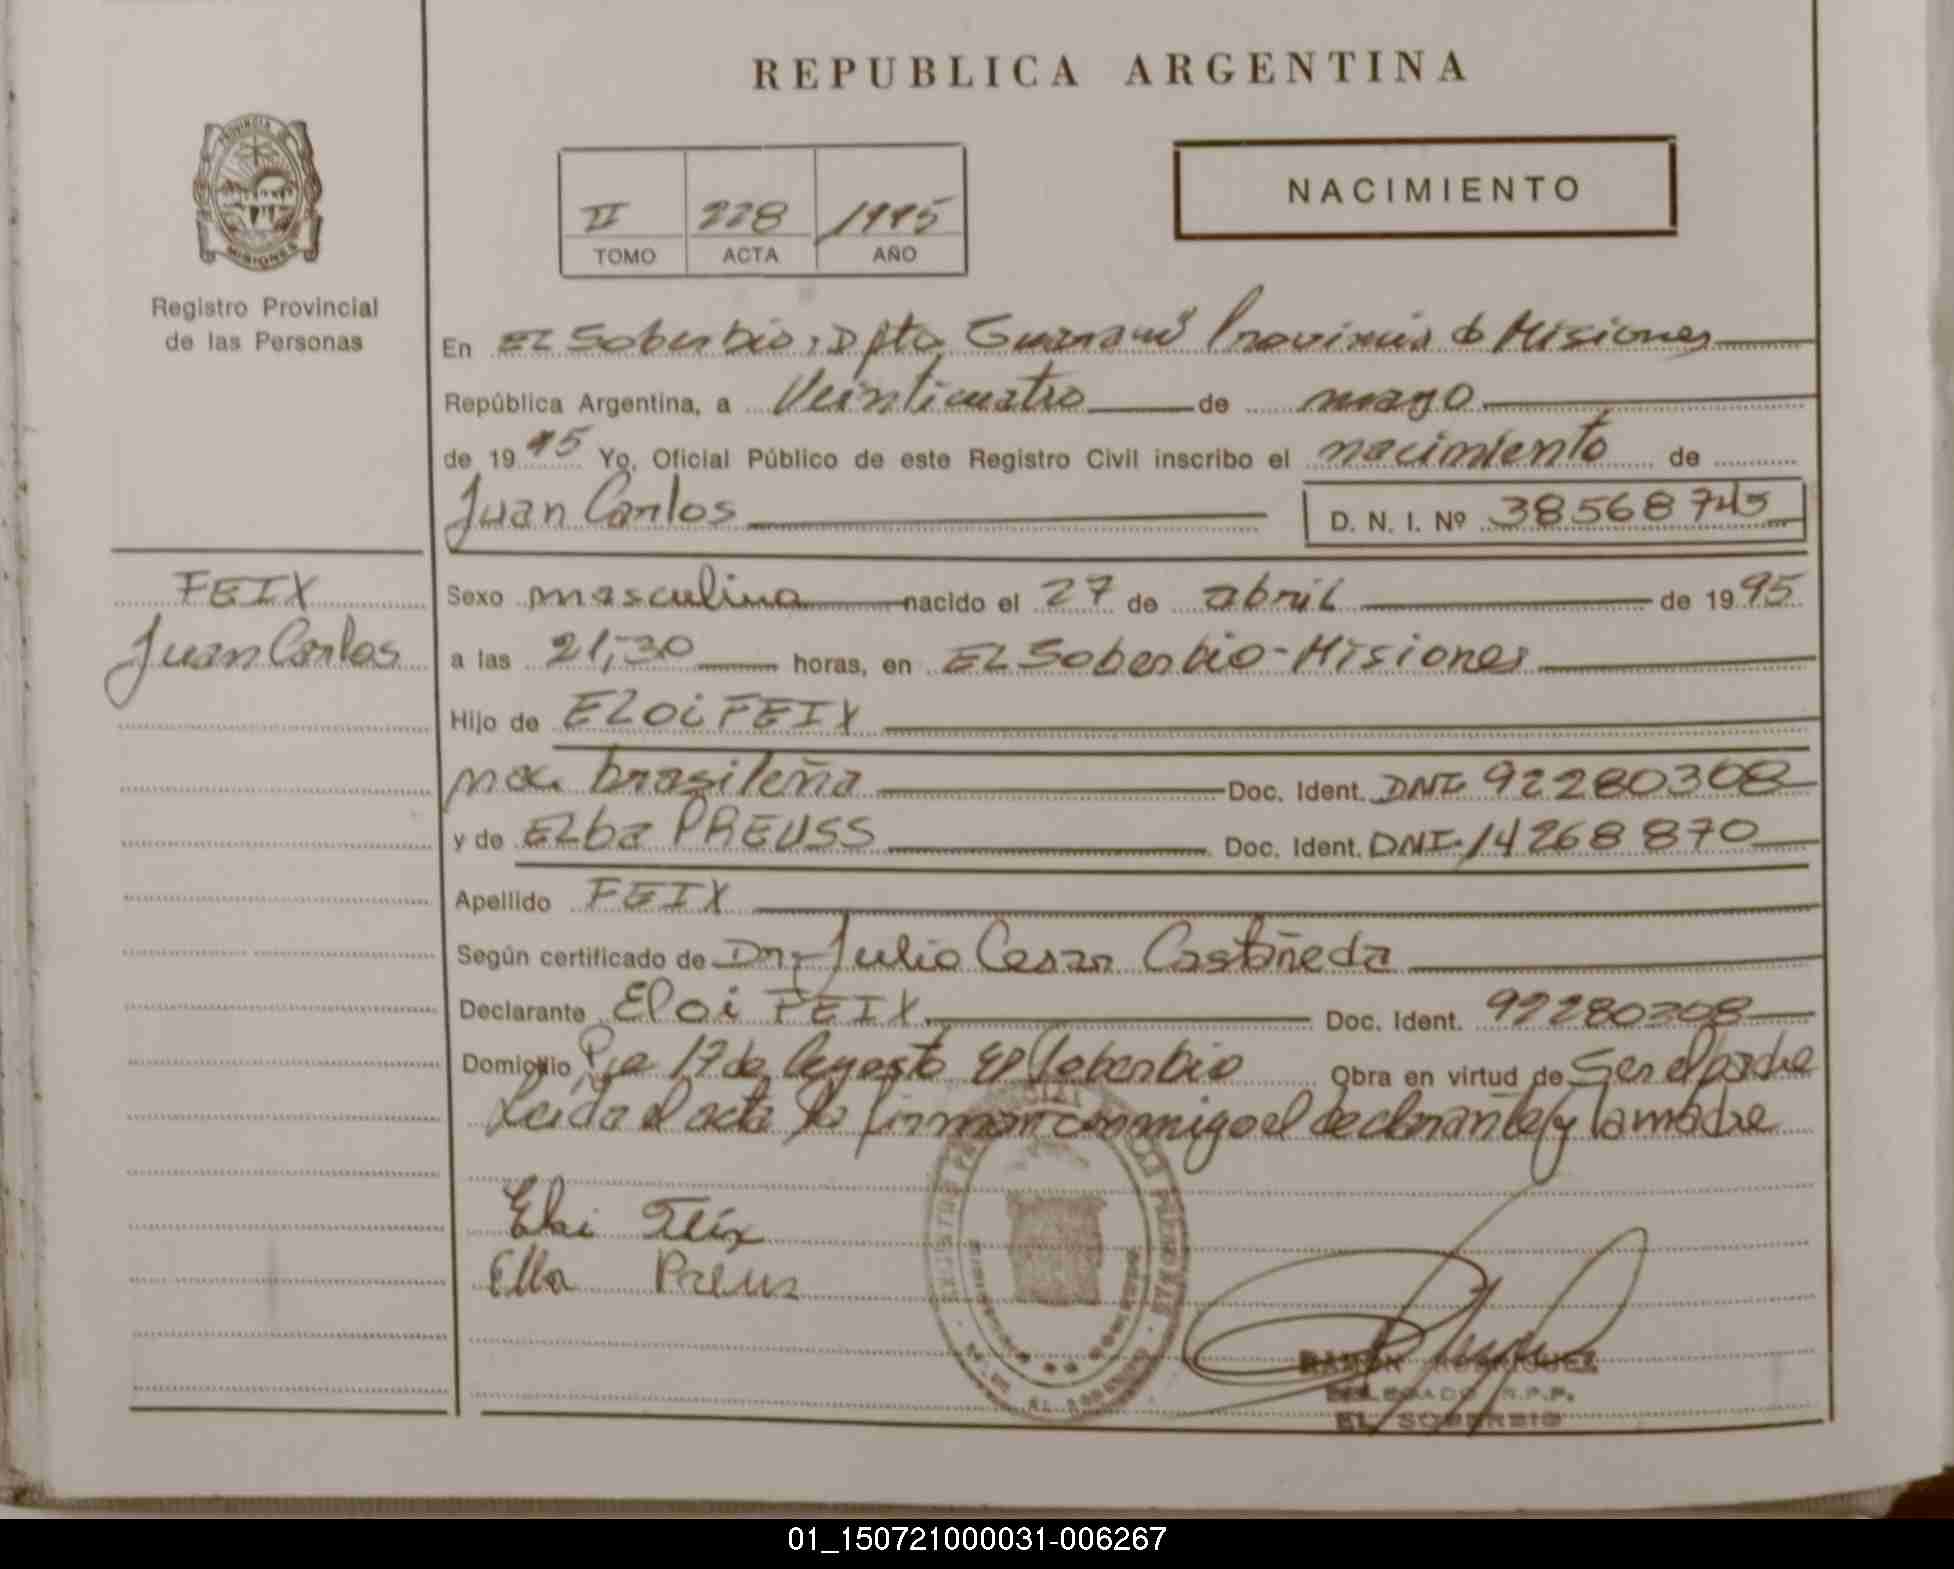 REPUBLICA ARGENTINA
PROVINCIA DE
MISIONES
Registro Provincial
de las Personas
II 228 1995
TOMO ACTA AÑO
NACIMIENTO
En El Soberbio, Dpto Guaraní Provincia de Misiones
República Argentina, a Veinticuatro de mayo
de 1995 Yo, Oficial Público de este Registro Civil inscribo el nacimiento de
Juan Carlos D. N. I. Nº 38568745
FEIX
Juan Carlos
Sexo masculino nacido el 27 de abril de 1995
a las 21,30 horas, en El Soberbio - Misiones
Hijo de Eloi FEIX
nac brasileña Doc. Ident. DNI 92280308
y de Elba PREUSS Doc. Ident. DNI. 14268870
Apellido FEIX
Según certificado de Dr. Julio Cesar Castañeda
Declarante Eloi FEIX Doc. Ident. 92280308
Domicilio Pje 17 de Agosto El Soberbio Obra en virtud de Ser el padre
Leida el acta la firman conmigo el declarante y la madre
Eloi Feix
Elba Preuss
RAMON RODRIGUEZ
DELEGADO R.P.P.
EL SOBERBIO
01_150721000031-006267